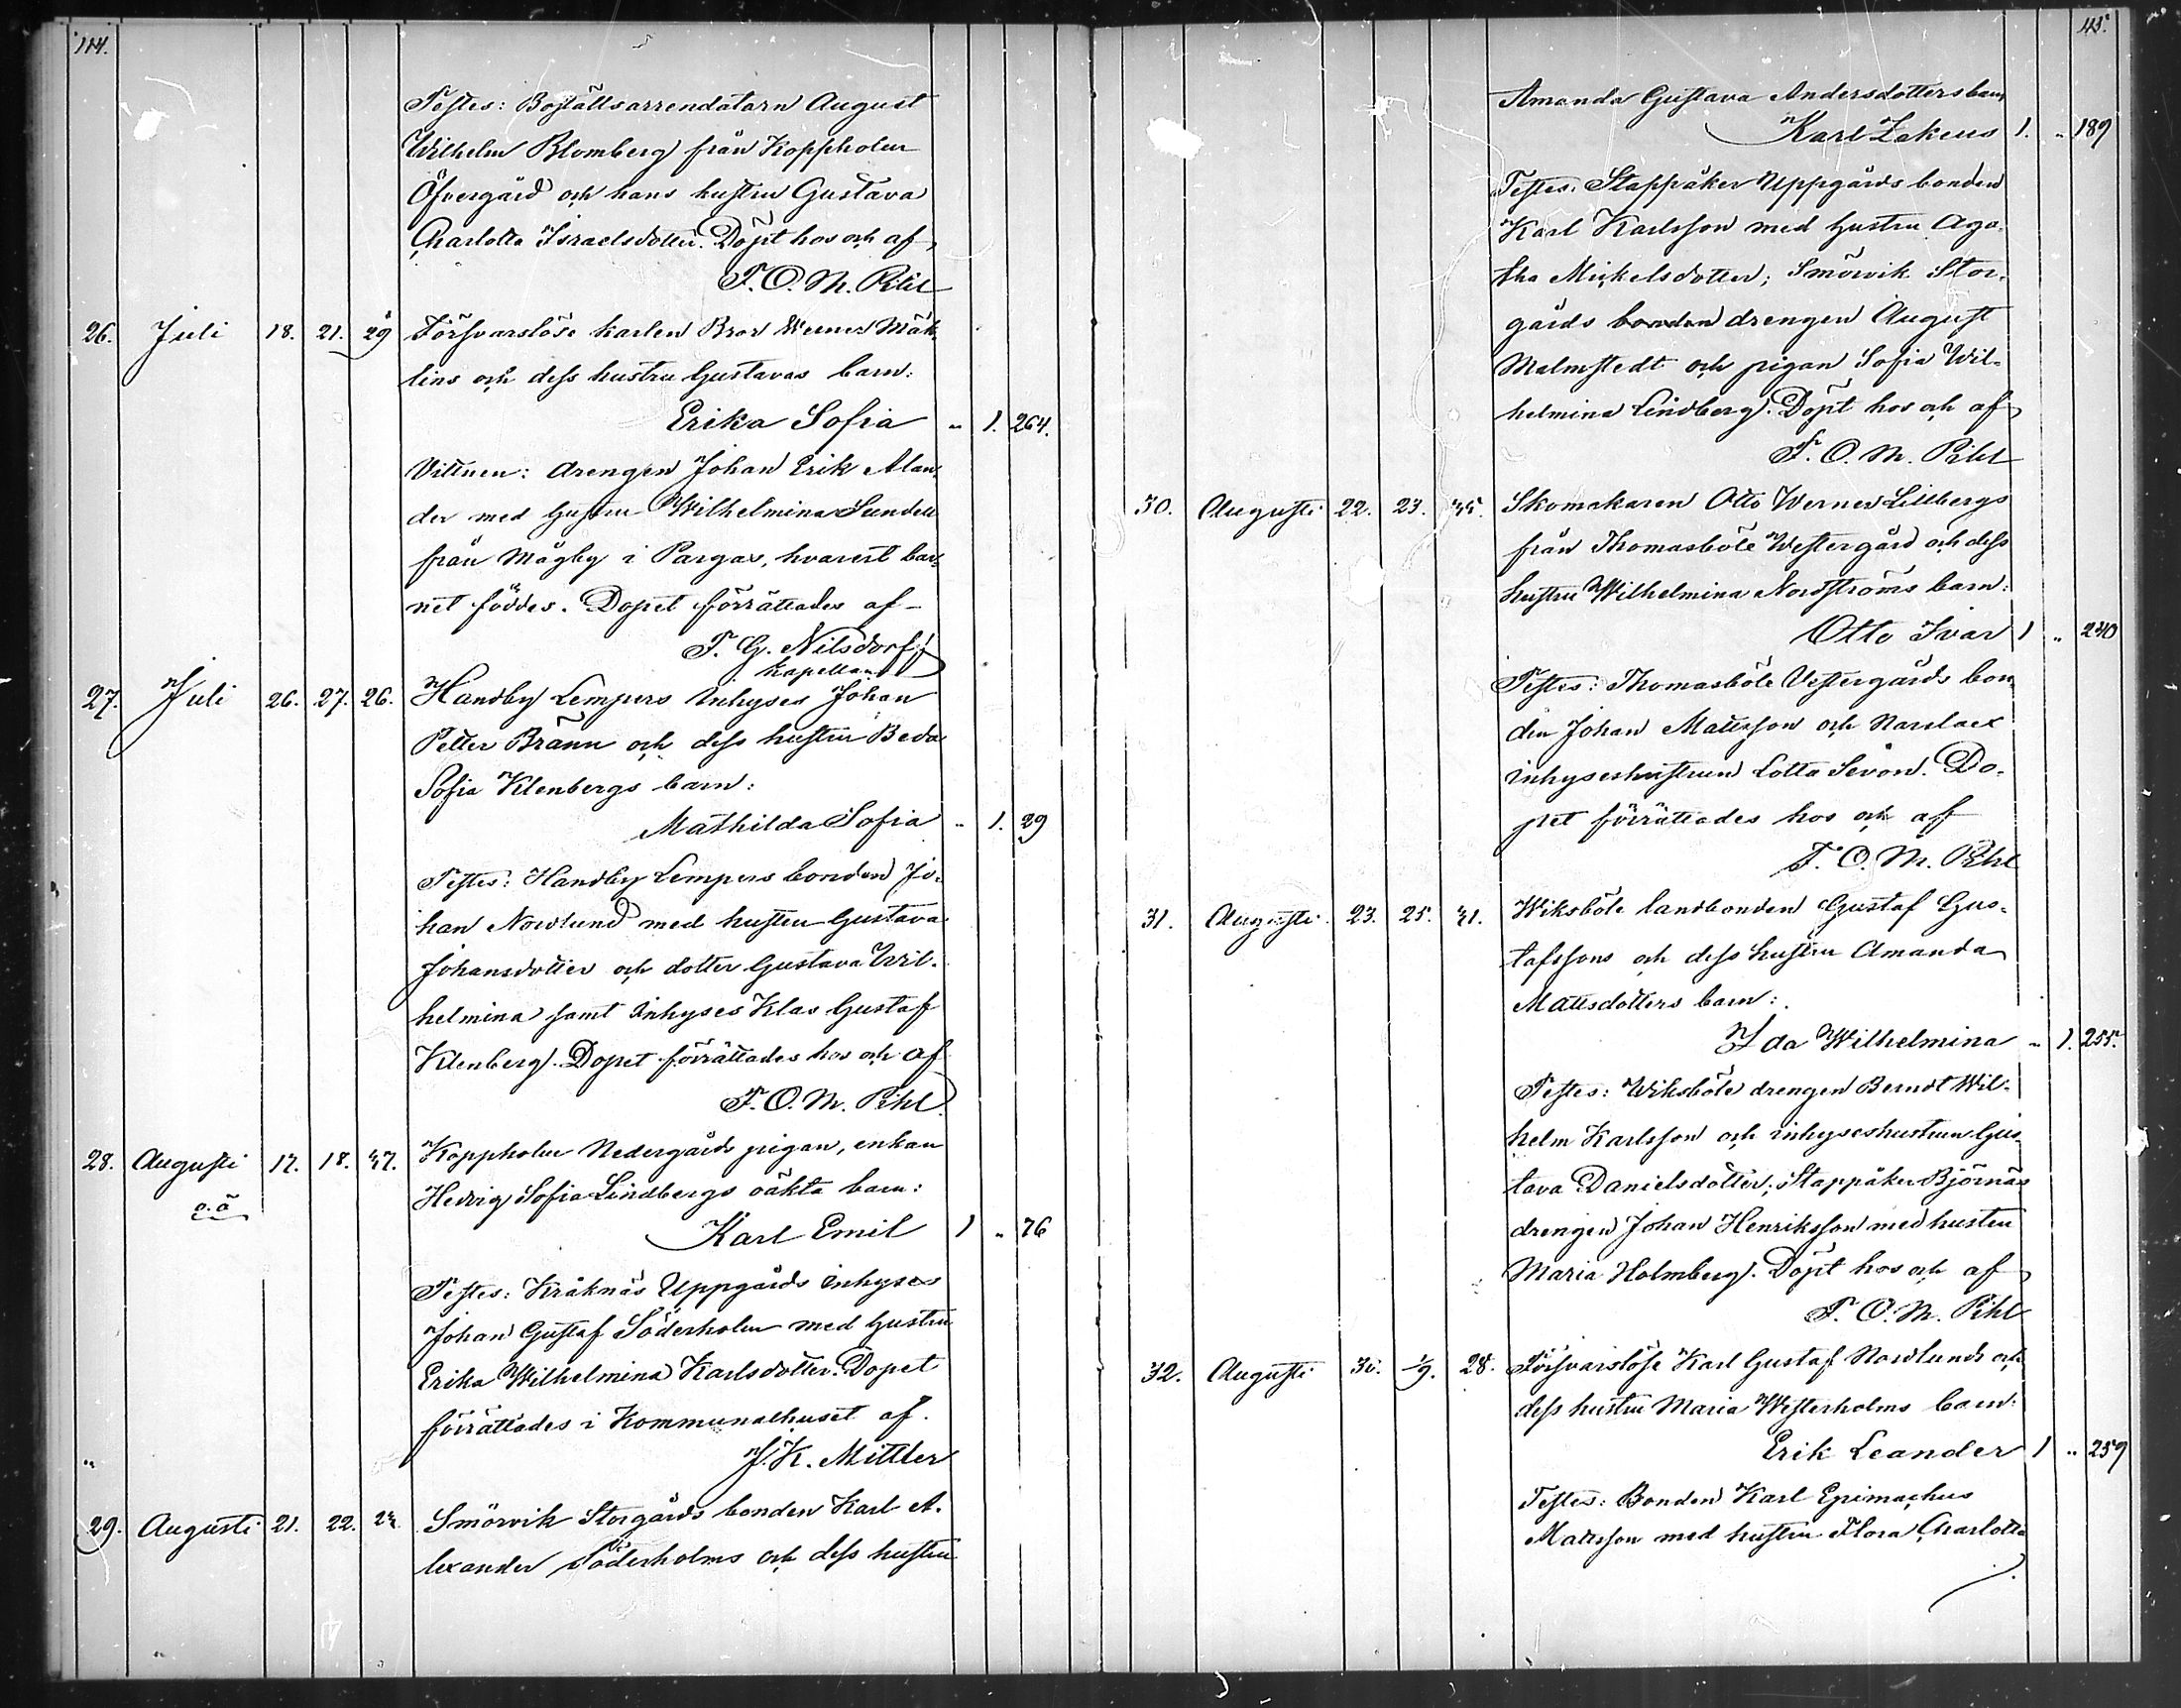 114.
Testes: Boställsarrendatorn August
Wilhelm Blomberg från Koppholm
Öfvergård och hans hustru Gustava
Charlotta Israelsdotter. Döpt hos och af
F. O. M. Pihl
26. Juli 18. 21. 29 Försvarslöse karlen Bror Werner Mäk-
lins och dess hustru Gustavas barn:
Erika Sofia " 1. 264.
Vittnen: drengen Johan Erik Alan-
der med hustru Wilhelmina Sundell
från Mågby i Pargas, hvarest bar-
net föddes. Dopet förrättades af
F. G. Nilsdorff
kapellan
27. Juli 26. 27. 26. Handby Lempers inhyses Johan
Petter Bränn och dess hustru Beda
Sofia Klenbergs barn:
Mathilda Sofia " 1. 29
Testes: Handby Lempers bonden Jo-
han Nordlund med hustru Gustava
Johansdotter och dotter Gustava Wil-
helmina samt inhyses Klas Gustaf
Klenberg. Dopet förrättades hos och af
F. O. M. Pihl
28. Augusti 17. 18. 37. Koppholm Nedergårds pigan, enkan
o.ä Hedvig Sofia Lindbergs oäkta barn:
Karl Emil 1 " 76
Testes: Kråknäs Uppgårds inhyses
Johan Gustaf Söderholm med hustru
Erika Wilhelmina Karlsdotter. Dopet
förrättades i Kommunalhuset af
J. K. Mittler
29. Augusti 21. 22. Smörvik Storgårds bonden Karl A-
lexander Söderholms och dess hustru
115.
Amanda Gustava Andersdotters barn
Karl Zakeus 1. " 189
Testes: Stappåker Uppgårds bonden
Karl Karlsson med hustru Aga-
tha Mickelsdotter; Smörvik Stor-
gårds bonden drengen August
Malmstedt och pigan Sofia Wil-
helmina Lindberg. Döpt hos och af
F. O. M. Pihl
30. Augusti 22. 23. 35. Skomakaren Otto Werner Lillbergs
från Thomasböle Westergård och dess
hustru Wilhelmina Nordströms barn:
Otto Ivar 1 " 240
Testes: Thomasböle Vestergårds bon-
den Johan Mattsson och Narslax
inhyseshustrun Lotta Sevón. Do-
pet förrättades hos och af
F. O. M. Pihl
31. Augusti 23. 25. 31. Wiksböle landbonden Gustaf Gus-
tafssons och dess hustru Amanda
Mattsdotters barn:
Ida Wilhelmina " 1. 255.
Testes: Wiksböle drengen Berndt Wil-
helm Karlsson och inhyseshustrun Gus-
tava Danielsdotter; Stappåker Björnäs
drengen Johan Henriksson med hustru
Maria Holmberg. Döpt hos och af
F. O. M. Pihl
32. Augusti 30. 1/9. 28. Försvarslöse Karl Gustaf Nordlunds och
dess hustru Maria Westerholms barn:
Erik Leander 1 " 259
Testes: Bonden Karl Epimachus
Mattsson med hustru Flora Charlotta